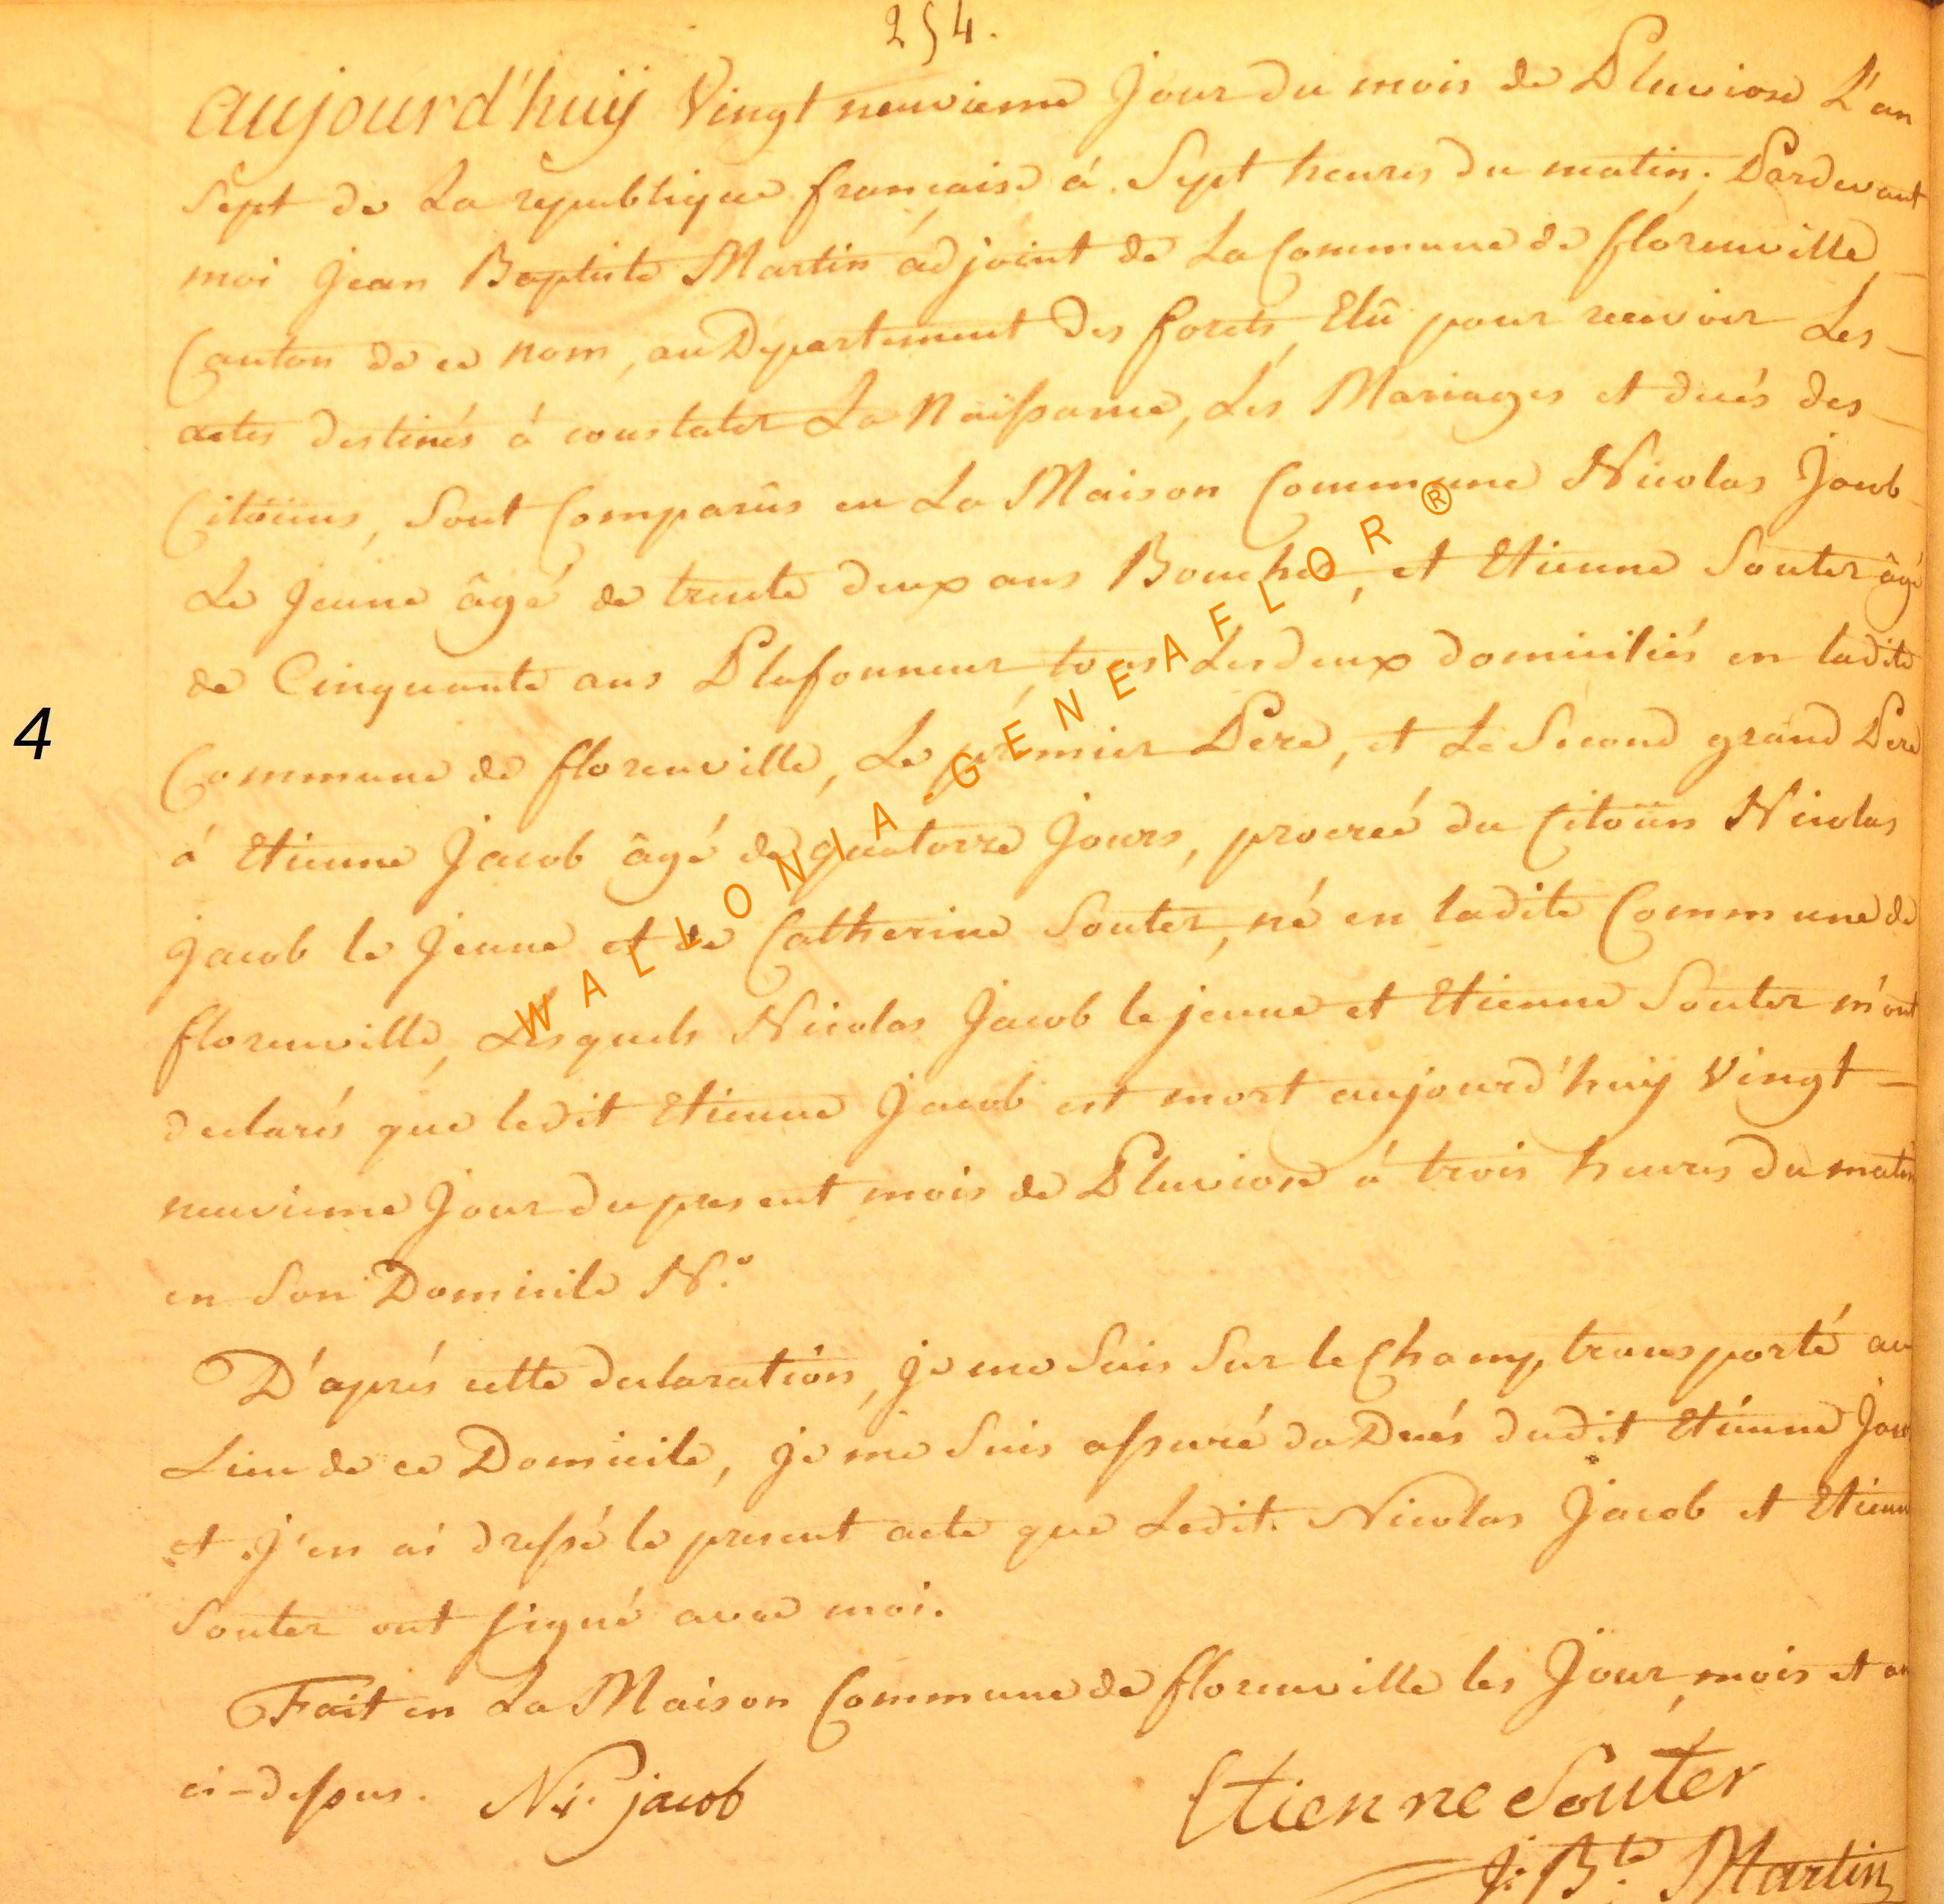 254.
aujourd'huÿ Vingt neuvieme Jour du mois de Pluviose L'an
Sept de La republique francaise á Sept heures du matin; Pardevant
moi Jean Baptiste Martin adjoint de La Commune de florenville,
Canton de ce nom, au Département des forets, Elû pour recevoir Les
actes destinés á constater La Naissance, Les Mariages et decés des
Citoïens, Sont Comparûs en La Maison Commune Nicolas Jacob
Le Jeune âgé de trente deux ans Boucher, et Etienne Souter âgé
de Cinquante ans Plafonneur, tous Les deux domiciliés en ladite
Commune de florenville, Le premier Pere, et Le Second grand Pere
á Etienne Jacob âgé de quatorze Jours, procreé du Citoïen Nicolas
Jacob le Jeune et de Catherine Souter, né en ladite Commune de
florenville, Lesquels Nicolas Jacob le jeune et Etienne Souter m'ont
declarés que ledit Etienne Jacob est mort aujourd'huÿ Vingt
neuvieme Jour du present mois de Pluviose á trois heures du matin
en Son Domicile N.°
D'aprés cette declaration, je me Suis Sur le Champ, transporté au
Lieu de ce Domicile, je me Suis assuré du Decés dudit Etienne Jacob
et j'en ai dressé le present acte que Ledit Nicolas Jacob et Etienne
Souter ont signé avec moi.
Fait en La Maison Commune de florenville les Jour, mois et an
ci-dessus. Ni. jacob
Etienne Souter
J: B.te Martin
4
WALLONIA.GÉNÉAFLOR®